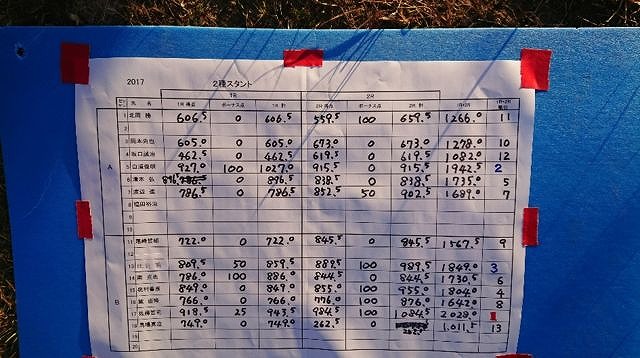 2017 2種スタント
1R 2R
氏 名 1R 得点 ボーナス点 1R 計 2R 得点 ボーナス点 2R 計 1R+2R 1R+2R 順位
A
1 北岡 勝 606.5 0 606.5 559.5 100 659.5 1266.0 11
2
3 605.0 0 605.0 673.0 0 673.0 1278.0 10
4 坂口誠治 462.5 0 462.5 619.5 0 619.5 1082.0 12
5 927.0 100 1027.0 915.5 0 915.5 1942.5 2
6 清本 弘 896.5 0 896.5 838.5 0 838.5 1735.0 5
7 渡辺 進 786.5 0 786.5 852.5 50 902.5 1689.0 7
8 塩田裕治
9
10
11 尾崎 722.0 0 722.0 845.5 0 845.5 1567.5 9
12
B
13 809.5 50 859.5 889.5 100 989.5 1849.0 3
14 786.0 100 886.0 844.5 0 844.5 1730.5 6
15 849.0 0 849.0 855.0 100 955.0 1804.0 4
16 766.0 0 766.0 776.0 100 876.0 1642.0 8
17 佐藤 918.5 25 943.5 984.5 100 1084.5 2028.0 1
18 749.0 0 749.0 262.5 0 262.5 1,011.5 13
19
20